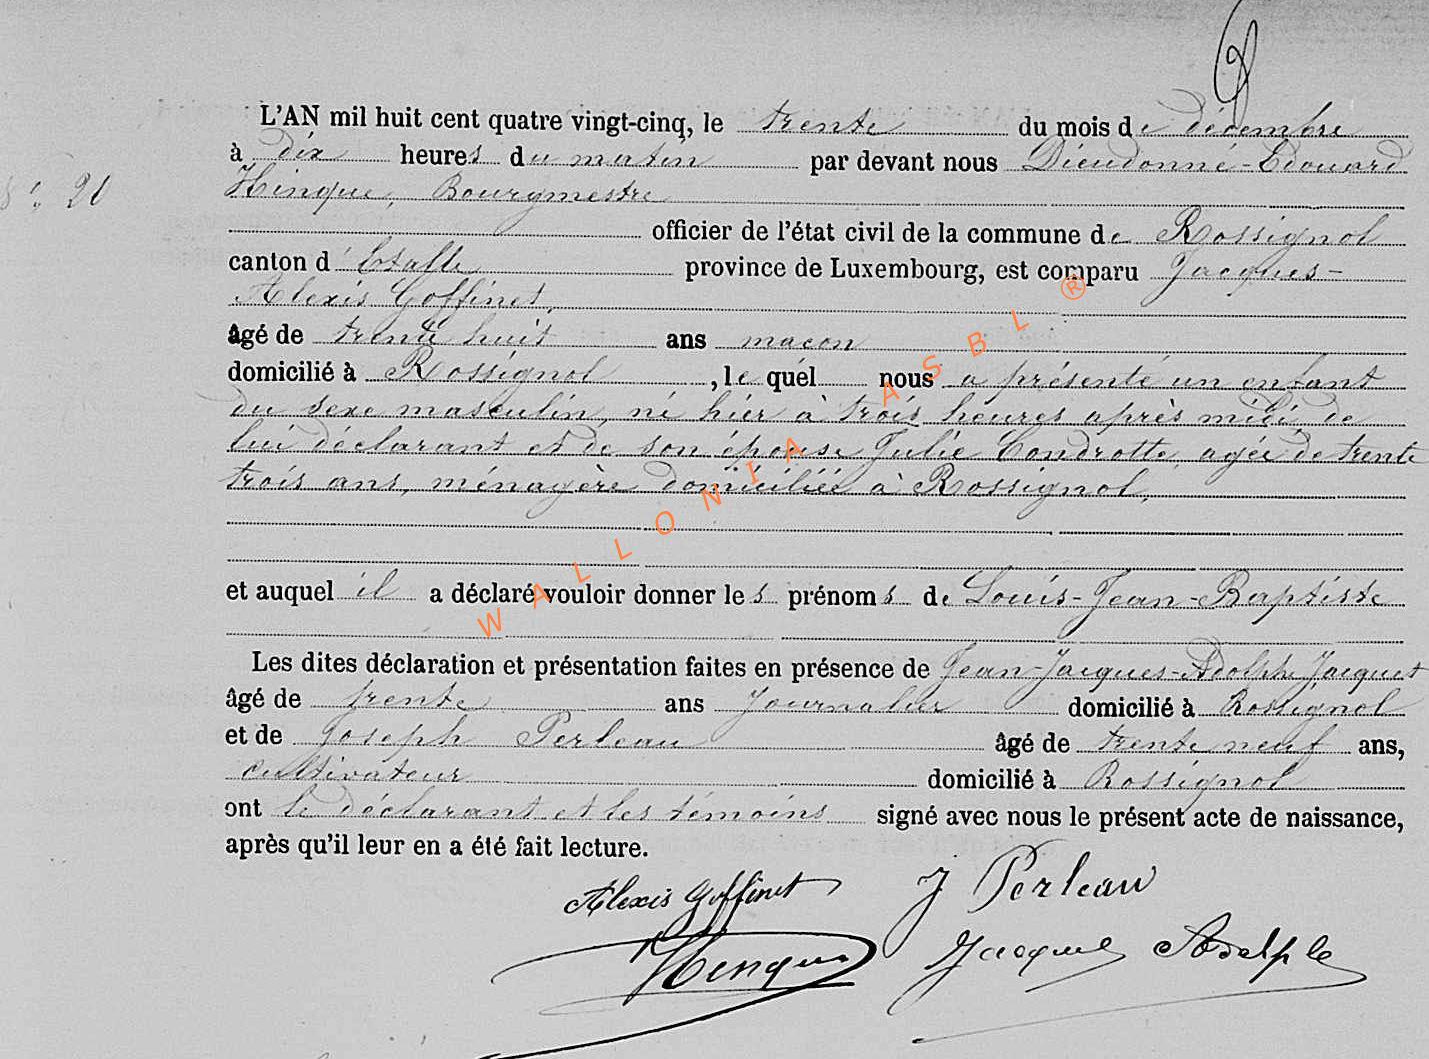 L'AN mil huit cent quatre vingt-cinq, le trente du mois de décembre
à dix heures du matin par devant nous Dieudonné-Edouard
Hinque, Bourgmestre
officier de l'état civil de la commune de Rossignol
canton d'Etalle province de Luxembourg, est comparu Jacques-
Alexis Goffinet,
âgé de trente huit ans maçon
domicilié à Rossignol, lequel nous a présenté un enfant
du sexe masculin, né hier à trois heures après midi, de
lui déclarant et de son épouse Julie Condrotte, agée de trente
trois ans, ménagère domiciliée à Rossignol,
et auquel il a déclaré vouloir donner les prénoms de Louis-Jean-Baptiste
Les dites déclaration et présentation faites en présence de Jean-Jacques-Adolphe Jacquet
âgé de trente ans Journalier domicilié à Rossignol
et de Joseph Perleau âgé de trente neuf ans,
cultivateur domicilié à Rossignol
ont le déclarant et les témoins signé avec nous le présent acte de naissance,
après qu'il leur en a été fait lecture.
Alexis Goffinet J Perleau
Hinque Jacquet Adolphe
WALLONIA ASBL ®